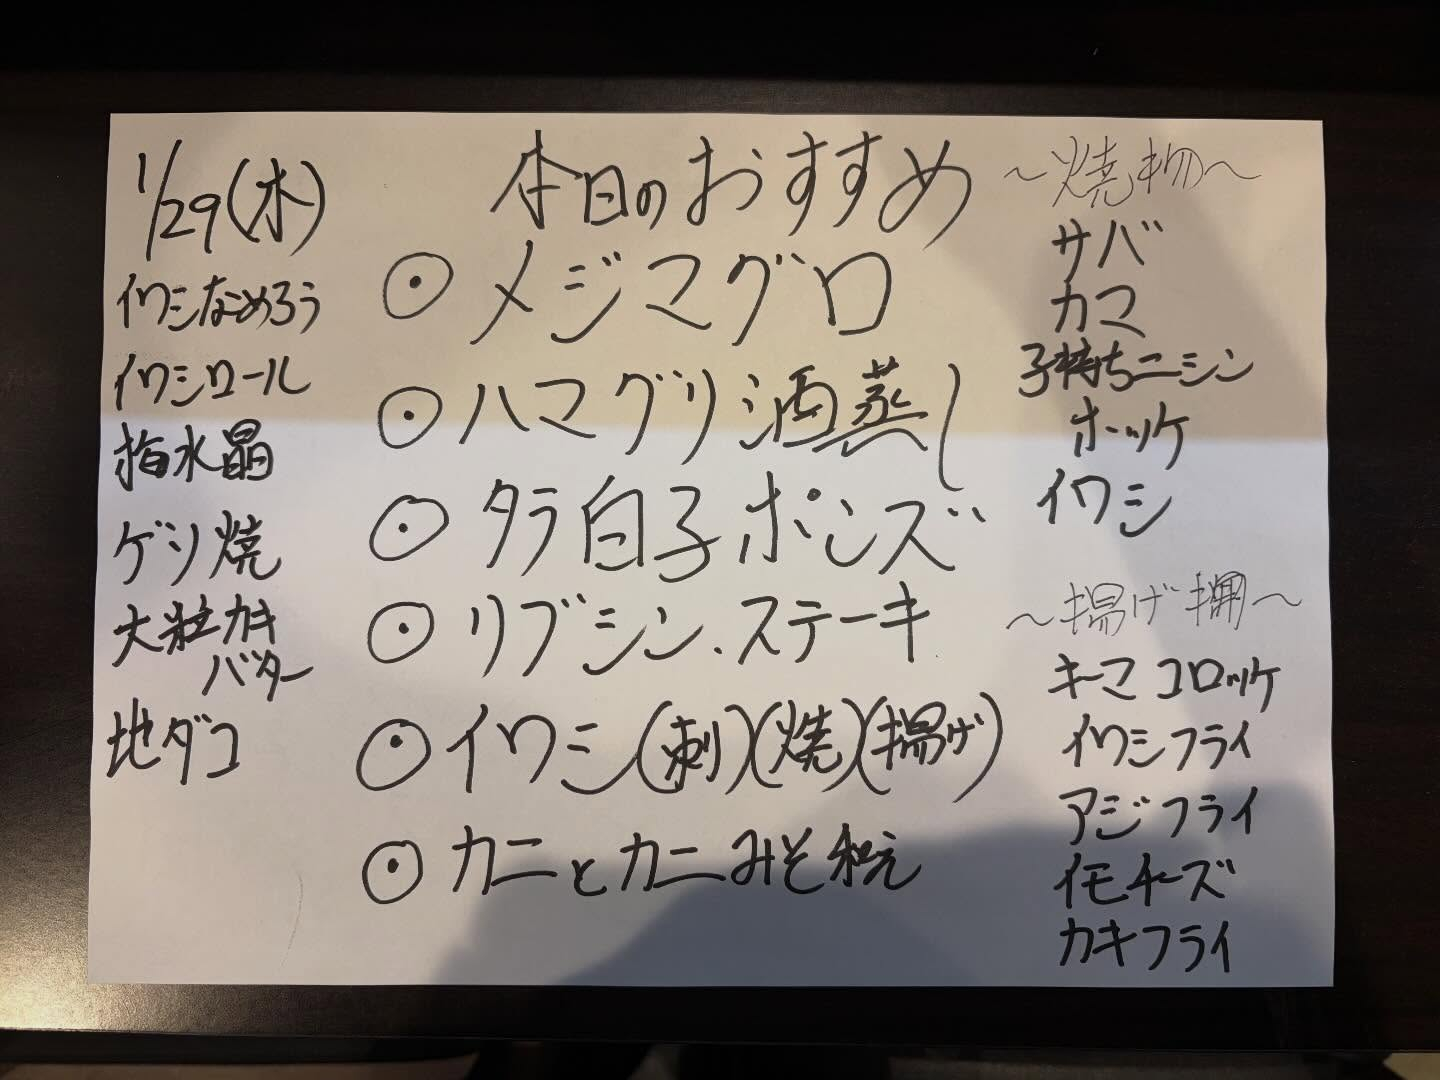 1/29(木)
イワシなめろう
イワシロール
指水晶
ゲソ焼
大粒カキ
バター
地ダコ
本日のおすすめ
⦿メジマグロ
⦿ハマグリ酒蒸し
⦿タラ白子ポンズ
⦿リブシン.ステーキ
⦿イワシ(刺)(焼)(揚げ)
⦿カニとカニみそ和え
～焼物～
サバ
カマ
子持ちニシン
ホッケ
イワシ
～揚げ～
キーマコロッケ
イワシフライ
アジフライ
イモチーズ
カキフライ